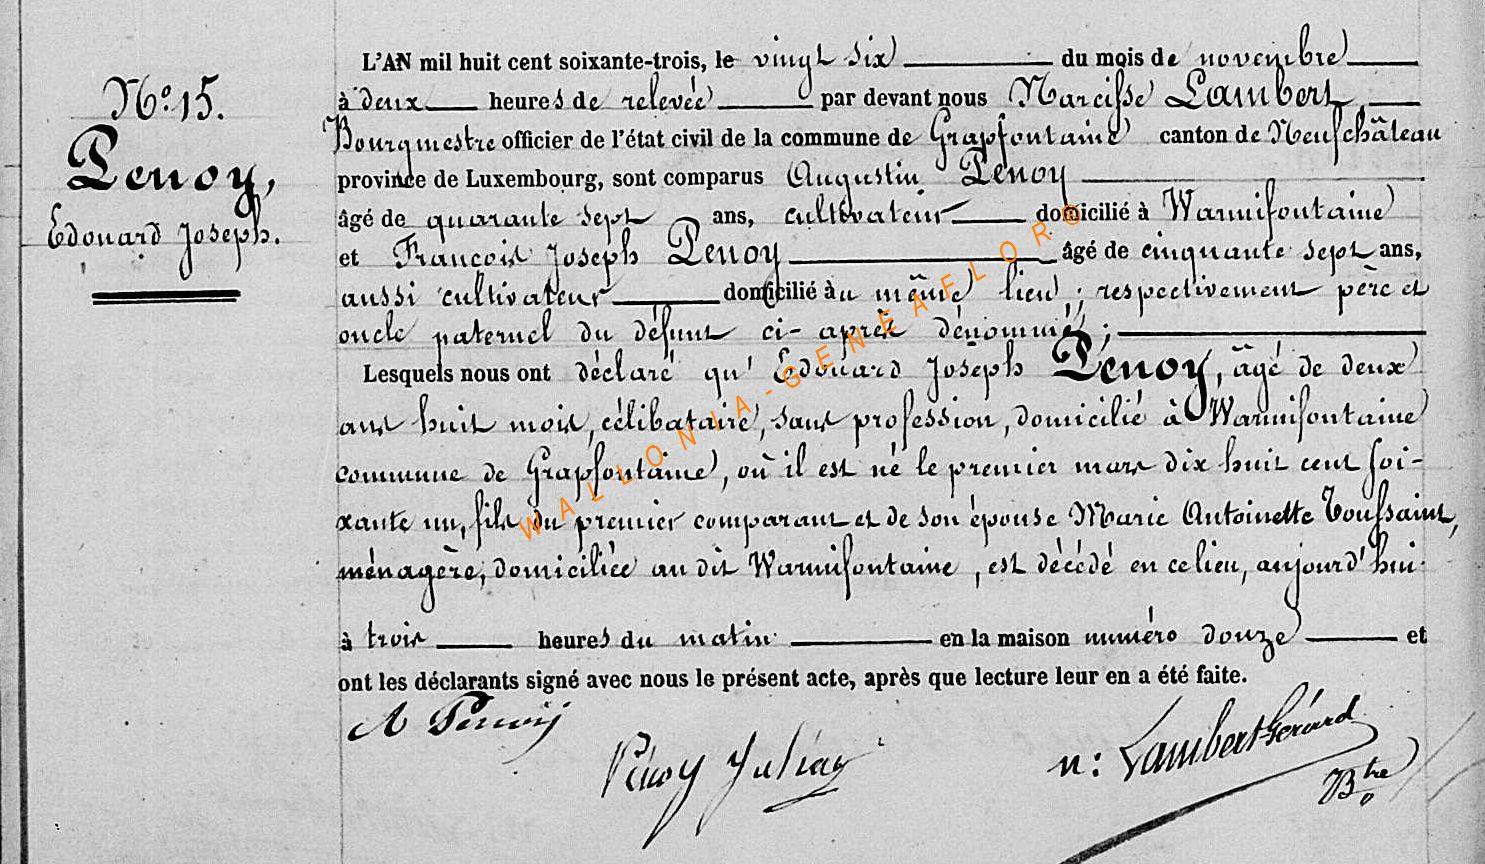 No. 15.
Penoy,
Edouard Joseph.
L'AN mil huit cent soixante-trois, le vingt six du mois de novembre
à deux heures de relevée par devant nous Narcisse Lambert,
Bourgmestre officier de l'état civil de la commune de Grapfontaine canton de Neufchâteau
province de Luxembourg, sont comparus Augustin Penoy
âgé de quarante sept ans, cultivateur domicilié à Warmifontaine
et François Joseph Penoy âgé de cinquante sept ans,
aussi cultivateur domicilié au même lieu ; respectivement père et
oncle paternel du défunt ci-après dénommé ;
Lesquels nous ont déclaré qu'Edouard Joseph Penoy, âgé de deux
ans huit mois, célibataire, sans profession, domicilié à Warmifontaine
commune de Grapfontaine, où il est né le premier mars dix huit cent soi-
xante un, fils du premier comparant et de son épouse Marie Antoinette Toussaint,
ménagère, domiciliée au dit Warmifontaine, est décédé en ce lieu, aujourd'hui
à trois heures du matin en la maison numéro douze et
ont les déclarants signé avec nous le présent acte, après que lecture leur en a été faite.
A Penoij
Penoy
n: Lambert Gérard
Btre
WALLONIA-GENEAFLOR©